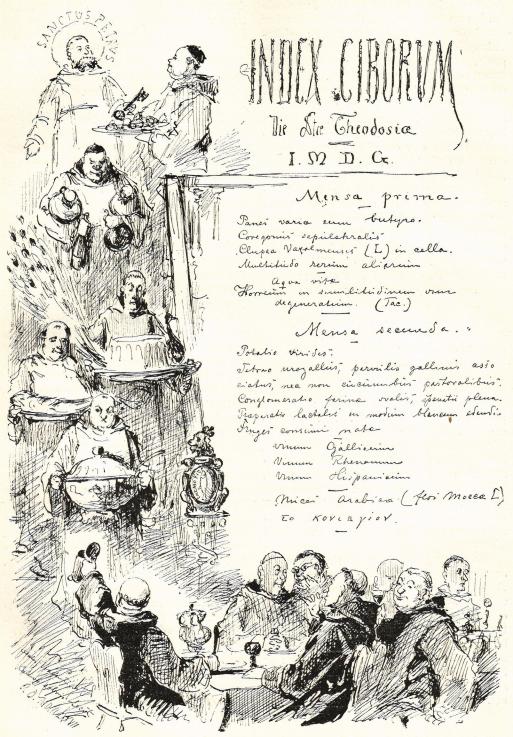 SANCTUS PETRUS
INDEX CIBORVM
Die Theodosiæ
I. M. D. G.
Mensa prima.
Panes varia cum butyro.
Coregonus sepulchralis
Clupea (L) in cella.
Multitudo rerum aliarum
Aqua vitæ
Horreum in similitudinem vini
degeneratum. (Tac.)
Mensa secunda.
Potatio viridis.
Tetrao urogallus, pervilis gallinis asso
ciatus, nec non cucumibus pastoralibus.
Conglomeratio farina ovalis, plena.
lactatis in modum edendi
nata
vinum Gallicum
Vinum Rhenanum
vinum Hispanicum
Arabica (flos Mocca L)
το κονιαγιον.